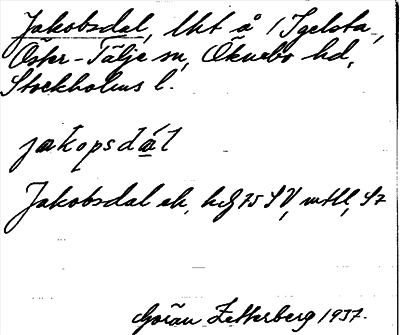 Jakobsdal, lht å 1 Igelsta,
Öster-Tälje sn, Öknebo hd,
Stockholms l.
jakopsdál
Jakobsdal ek, 75 SV,
Göran Zetterberg 1937.